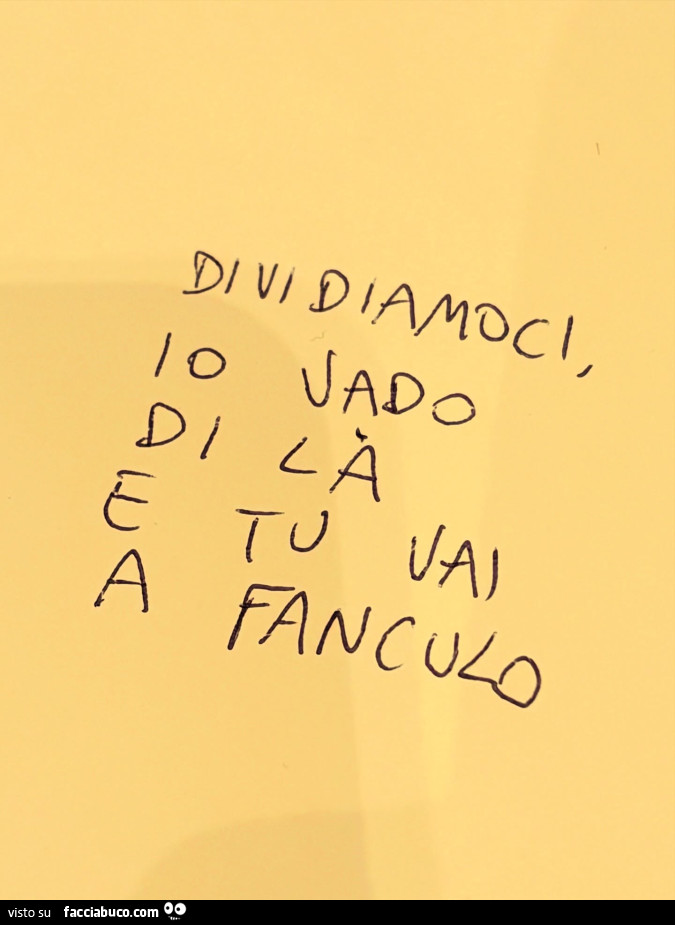 DIVIDIAMOCI,
IO VADO
DI LÀ
E TU VAI
A FANCULO
visto su facciabuco.com